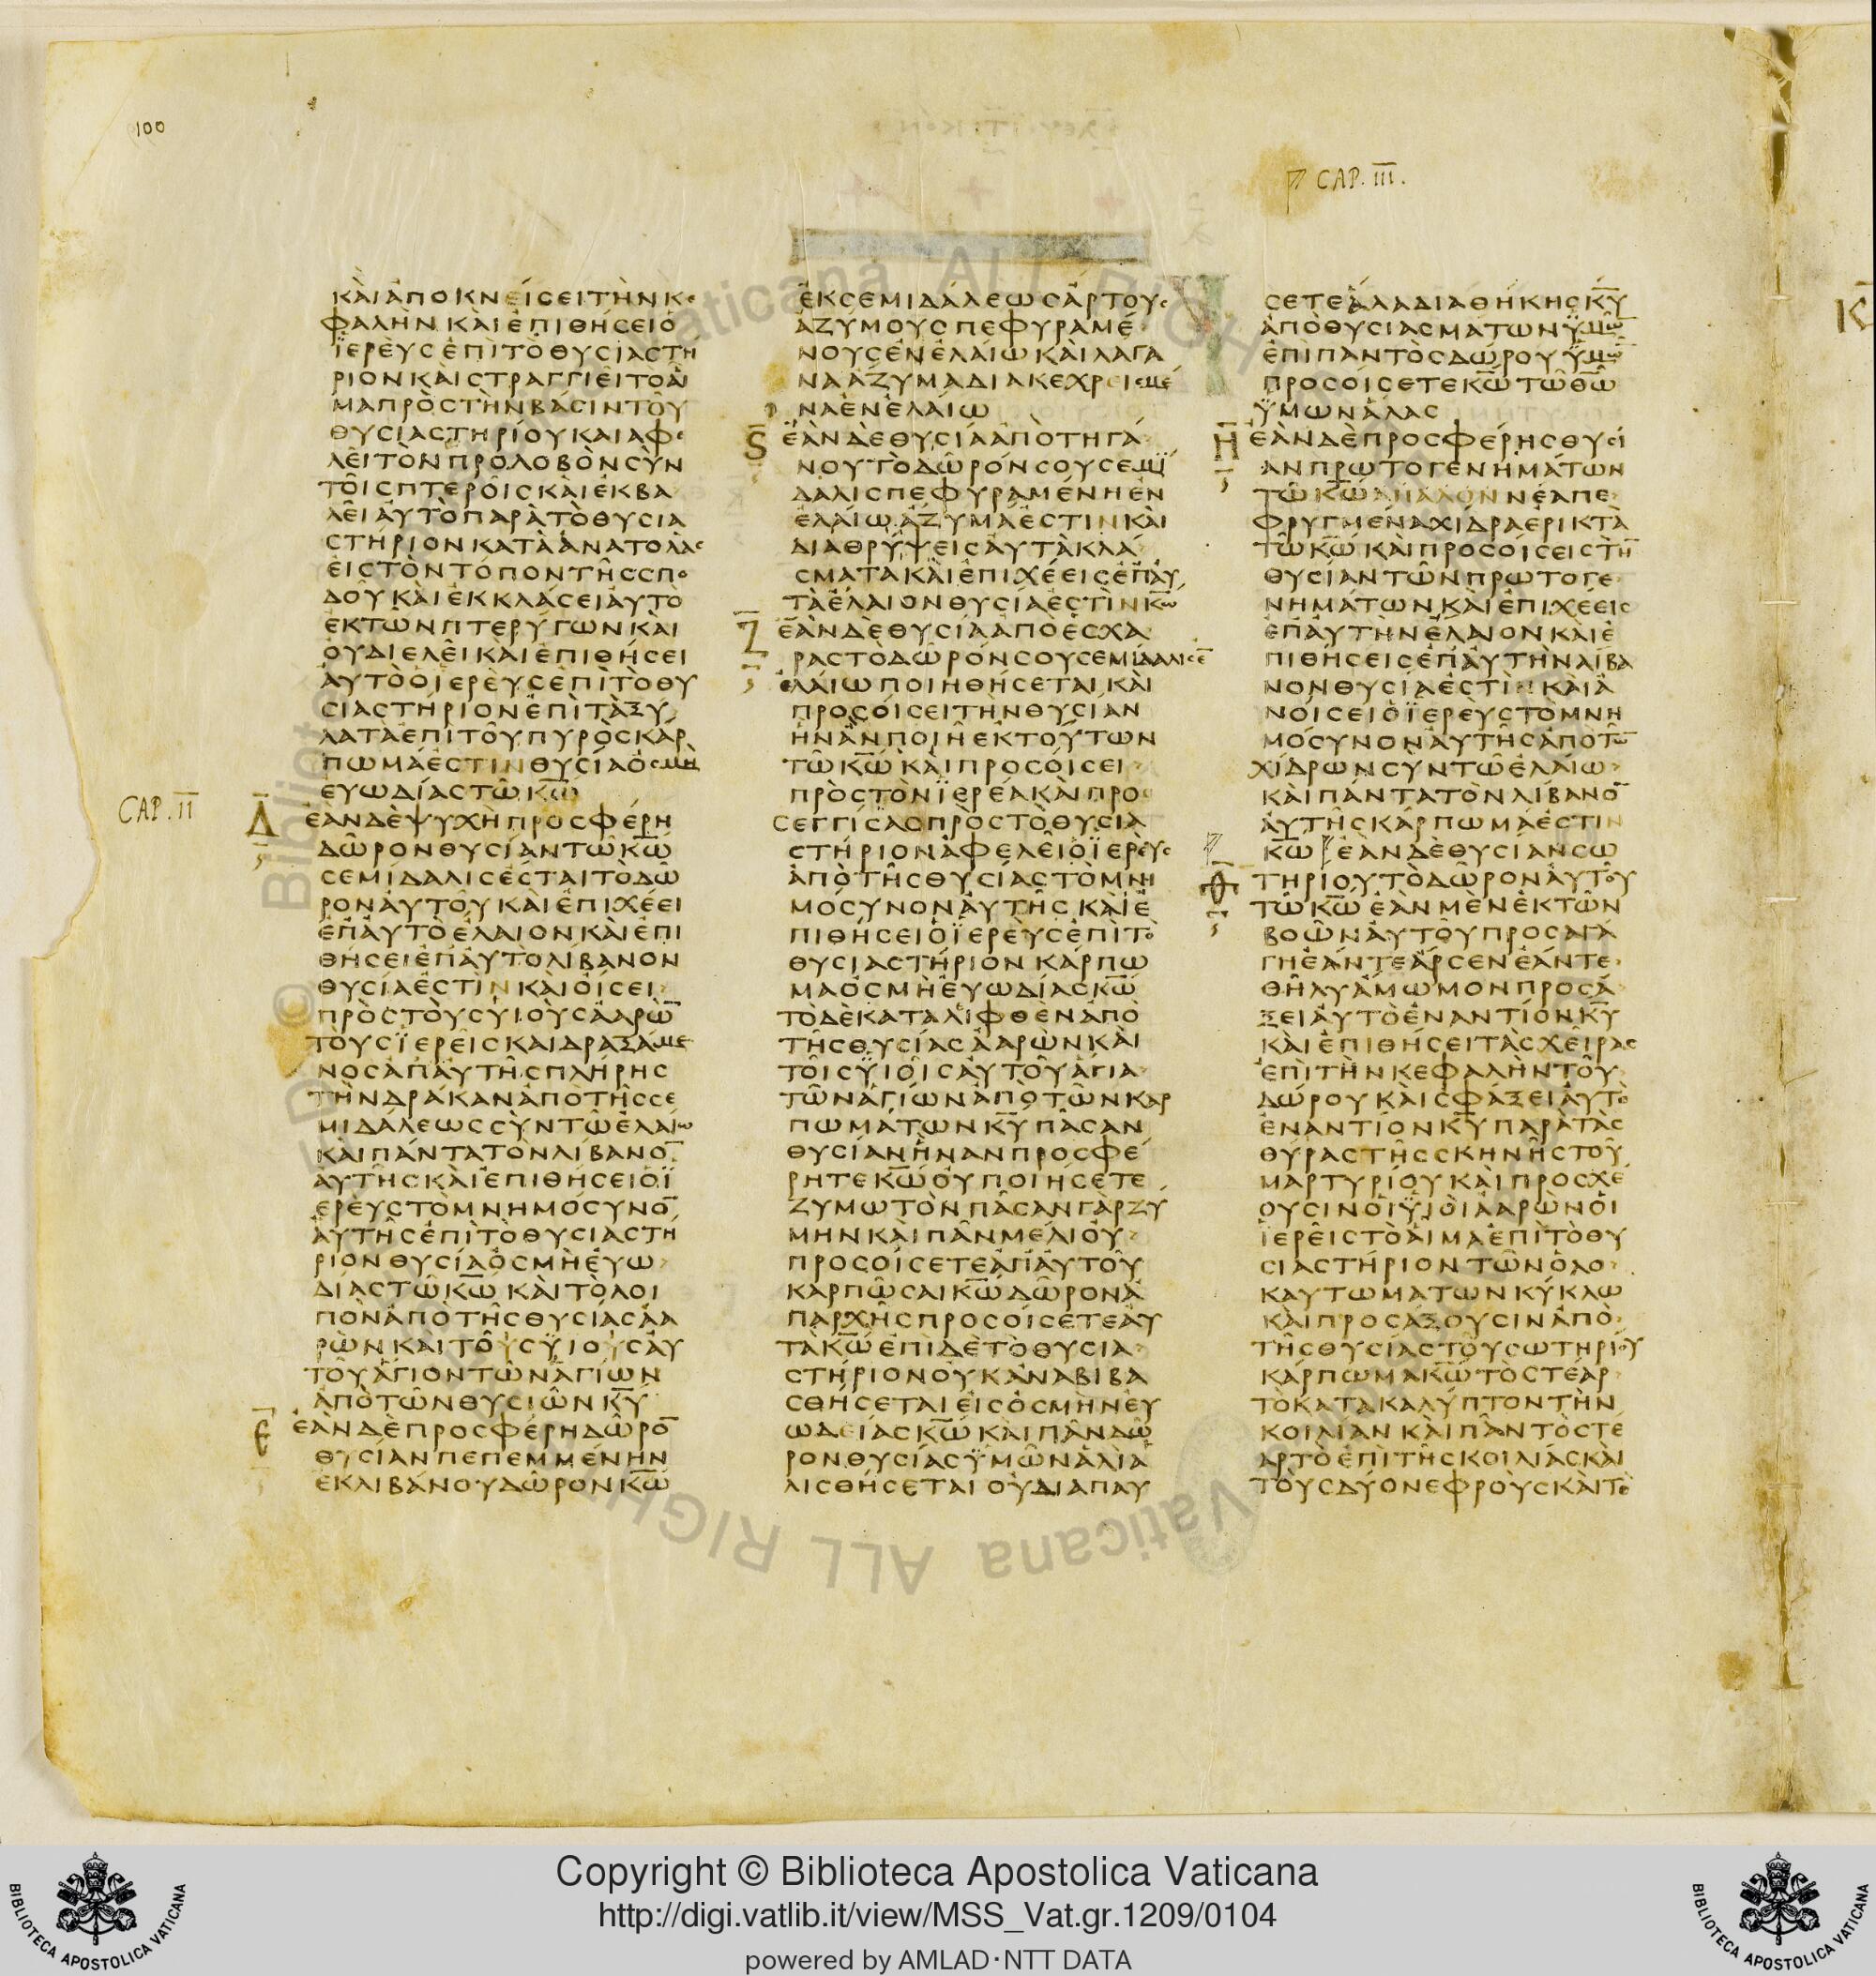 100
CAP. III.
ΚΑΙΑΠΟΚΝΕΙϹΕΙΤΗΝΚΕ
ΦΑΛΗΝ ΚΑΙΕΠΙΘΗϹΕΙΟ
ΪΕΡΕΥϹΕΠΙΤΟΘΥϹΙΑϹΤΗ
ΡΙΟΝΚΑΙϹΤΡΑΓΓΙΕΙΤΟΑΙ
ΜΑΠΡΟϹΤΗΝΒΑϹΙΝΤΟΥ
ΘΥϹΙΑϹΤΗΡΙΟΥΚΑΙΑΦΕ
ΛΕΙΤΟΝΠΡΟΛΟΒΟΝϹΥΝ
ΤΟΙϹΠΤΕΡΟΙϹΚΑΙΕΚΒΑ
ΛΕΙΑΥΤΟΠΑΡΑΤΟΘΥϹΙΑ
ϹΤΗΡΙΟΝΚΑΤΑΑΝΑΤΟΛΑϹ
ΕΙϹΤΟΝΤΟΠΟΝΤΗϹϹΠΟ
ΔΟΥΚΑΙΕΚΚΛΑϹΕΙΑΥΤΟ
ΕΚΤΩΝΠΤΕΡΥΓΩΝΚΑΙ
ΟΥΔΙΕΛΕΙΚΑΙΕΠΙΘΗϹΕΙ
ΑΥΤΟΟΪΕΡΕΥϹΕΠΙΤΟΘΥ
ϹΙΑϹΤΗΡΙΟΝΕΠΙΤΑΞΥ
ΛΑΤΑΕΠΙΤΟΥΠΥΡΟϹΚΑΡ
ΠΩΜΑΕϹΤΙΝΘΥϹΙΑΟϹΜΗ
ΕΥΩΔΙΑϹΤΩΚ̅Ω̅
CAP. II
Δ̅
ΕΑΝΔΕΨΥΧΗΠΡΟϹΦΕΡΗ
ΔΩΡΟΝΘΥϹΙΑΝΤΩΚ̅Ω̅
ϹΕΜΙΔΑΛΙϹΕϹΤΑΙΤΟΔΩ
ΡΟΝΑΥΤΟΥΚΑΙΕΠΙΧΕΕΙ
ΕΠΑΥΤΟΕΛΑΙΟΝΚΑΙΕΠΙ
ΘΗϹΕΙΕΠΑΥΤΟΛΙΒΑΝΟΝ
ΘΥϹΙΑΕϹΤΙΝΚΑΙΟΙϹΕΙ
ΠΡΟϹΤΟΥϹΥΙΟΥϹΑΑΡΩ̅
ΤΟΥϹΪΕΡΕΙϹΚΑΙΔΡΑΞΑΜΕ
ΝΟϹΑΠΑΥΤΗϹΠΛΗΡΗϹ
ΤΗΝΔΡΑΚΑΝΑΠΟΤΗϹϹΕ
ΜΙΔΑΛΕΩϹϹΥΝΤΩΕΛΑΙΩ
ΚΑΙΠΑΝΤΑΤΟΝΛΙΒΑΝΟ̅
ΑΥΤΗϹΚΑΙΕΠΙΘΗϹΕΙΟΪ
ΕΡΕΥϹΤΟΜΝΗΜΟϹΥΝΟ̅
ΑΥΤΗϹΕΠΙΤΟΘΥϹΙΑϹΤΗ
ΡΙΟΝΘΥϹΙΑΟϹΜΗΕΥΩ
ΔΙΑϹΤΩΚ̅Ω̅ ΚΑΙΤΟΛΟΙ
ΠΟΝΑΠΟΤΗϹΘΥϹΙΑϹΑΑ
ΡΩΝΚΑΙΤΟΥϹΫΙΟΥϹΑΥ
ΤΟΥΑΓΙΟΝΤΩΝΑΓΙΩΝ
ΑΠΟΤΩΝΘΥϹΙΩΝΚ̅Υ̅
Ε̅
ΕΑΝΔΕΠΡΟϹΦΕΡΗΔΩΡΟ̅
ΘΥϹΙΑΝΠΕΠΕΜΜΕΝΗΝ
ΕΚΛΙΒΑΝΟΥΔΩΡΟΝΚ̅Ω̅
ΕΚϹΕΜΙΔΑΛΕΩϹΑΡΤΟΥϹ
ΑΖΥΜΟΥϹΠΕΦΥΡΑΜΕ
ΝΟΥϹΕΝΕΛΑΙΩΚΑΙΛΑΓΑ
ΝΑΑΖΥΜΑΔΙΑΚΕΧΡΕΙϹΜΕ
ΝΑΕΝΕΛΑΙΩ
Ϛ̅
ΕΑΝΔΕΘΥϹΙΑΑΠΟΤΗΓΑ
ΝΟΥΤΟΔΩΡΟΝϹΟΥϹΕΜΙ
ΔΑΛΙϹΠΕΦΥΡΑΜΕΝΗΕΝ
ΕΛΑΙΩΑΖΥΜΑΕϹΤΙΝΚΑΙ
ΔΙΑΘΡΥΨΕΙϹΑΥΤΑΚΛΑ
ϹΜΑΤΑΚΑΙΕΠΙΧΕΕΙϹΕΠΑΥ
ΤΑΕΛΑΙΟΝΘΥϹΙΑΕϹΤΙΝΚ̅Ω̅
Ζ̅
ΕΑΝΔΕΘΥϹΙΑΑΠΟΕϹΧΑ
ΡΑϹΤΟΔΩΡΟΝϹΟΥϹΕΜΙΔΑΛΙϹΕ̅
ΕΛΑΙΩΠΟΙΗΘΗϹΕΤΑΙΚΑΙ
ΠΡΟϹΟΙϹΕΙΤΗΝΘΥϹΙΑΝ
ΗΝΑΝΠΟΙΗΕΚΤΟΥΤΩΝ
ΤΩΚ̅Ω̅ΚΑΙΠΡΟϹΟΙϹΕΙ
ΠΡΟϹΤΟΝΪΕΡΕΑΚΑΙΠΡΟ
ϹΕΓΓΙϹΑϹΠΡΟϹΤΟΘΥϹΙΑ
ϹΤΗΡΙΟΝΑΦΕΛΕΙΟΪΕΡΕΥϹ
ΑΠΟΤΗϹΘΥϹΙΑϹΤΟΜΝΗ
ΜΟϹΥΝΟΝΑΥΤΗϹΚΑΙΕ
ΠΙΘΗϹΕΙΟΪΕΡΕΥϹΕΠΙΤΟ
ΘΥϹΙΑϹΤΗΡΙΟΝΚΑΡΠΩ
ΜΑΟϹΜΗΕΥΩΔΙΑϹΚ̅Ω̅
ΤΟΔΕΚΑΤΑΛΙΦΘΕΝΑΠΟ
ΤΗϹΘΥϹΙΑϹΑΑΡΩΝΚΑΙ
ΤΟΙϹΫΙΟΙϹΑΥΤΟΥΑΓΙΑ
ΤΩΝΑΓΙΩΝΑΠΟΤΩΝΚΑΡ
ΠΩΜΑΤΩΝΚ̅Υ̅ΠΑϹΑΝ
ΘΥϹΙΑΝΗΝΑΝΠΡΟϹΦΕ
ΡΗΤΕΚ̅Ω̅ΟΥΠΟΙΗϹΕΤΕ
ΖΥΜΩΤΟΝΠΑϹΑΝΓΑΡΖΥ
ΜΗΝΚΑΙΠΑΝΜΕΛΙΟΥ
ΠΡΟϹΟΙϹΕΤΕΑΠΑΥΤΟΥ
ΚΑΡΠΩϹΑΙΚ̅Ω̅ΔΩΡΟΝΑ
ΠΑΡΧΗϹΠΡΟϹΟΙϹΕΤΕΑΥ
ΤΑΚ̅Ω̅ΕΠΙΔΕΤΟΘΥϹΙΑ
ϹΤΗΡΙΟΝΟΥΚΑΝΑΒΙΒΑ
ϹΘΗϹΕΤΑΙΕΙϹΟϹΜΗΝΕΥ
ΩΔΕΙΑϹΚ̅Ω̅ΚΑΙΠΑΝΔΩ
ΡΟΝΘΥϹΙΑϹΫΜΩΝΑΛΙΑ
ΛΙϹΘΗϹΕΤΑΙ ΟΥΔΙΑΠΑΥ
ϹΕΤΕΑΛΑΔΙΑΘΗΚΗϹΚ̅Υ̅
ΑΠΟΘΥϹΙΑϹΜΑΤΩΝΫΜΩ̅
ΕΠΙΠΑΝΤΟϹΔΩΡΟΥΫΜΩ̅
ΠΡΟϹΟΙϹΕΤΕΚ̅Ω̅ΤΩΘ̅Ω̅
ΫΜΩΝΑΛΑϹ
Η̅
ΕΑΝΔΕΠΡΟϹΦΕΡΗϹΘΥϹΙ
ΑΝΠΡΩΤΟΓΕΝΗΜΑΤΩΝ
ΤΩΚ̅Ω̅ΑΠΑΛΟΝΝΕΑΠΕ
ΦΡΥΓΜΕΝΑΧΙΔΡΑΕΡΙΚΤΑ
ΤΩΚ̅Ω̅ΚΑΙΠΡΟϹΟΙϹΕΙϹΤΗ̅
ΘΥϹΙΑΝΤΩΝΠΡΩΤΟΓΕ
ΝΗΜΑΤΩΝΚΑΙΕΠΙΧΕΕΙϹ
ΕΠΑΥΤΗΝΕΛΑΙΟΝΚΑΙΕ
ΠΙΘΗϹΕΙϹΕΠΑΥΤΗΝΛΙΒΑ
ΝΟΝΘΥϹΙΑΕϹΤΙΝΚΑΙΑ
ΝΟΙϹΕΙΟΪΕΡΕΥϹΤΟΜΝΗ
ΜΟϹΥΝΟΝΑΥΤΗϹΑΠΟΤΩ̅
ΧΙΔΡΩΝϹΥΝΤΩΕΛΑΙΩ
ΚΑΙΠΑΝΤΑΤΟΝΛΙΒΑΝΟ̅
ΑΥΤΗϹΚΑΡΠΩΜΑΕϹΤΙΝ
Κ̅Ω̅ΕΑΝΔΕΘΥϹΙΑΝϹΩ
Θ̅
ΤΗΡΙΟΥΤΟΔΩΡΟΝΑΥΤΟΥ
ΤΩΚ̅Ω̅ΕΑΝΜΕΝΕΚΤΩΝ
ΒΟΩΝΑΥΤΟΥΠΡΟϹΑΓΑ
ΓΗΕΑΝΤΕΑΡϹΕΝΕΑΝΤΕ
ΘΗΛΥΑΜΩΜΟΝΠΡΟϹΑ
ΞΕΙΑΥΤΟΕΝΑΝΤΙΟΝΚ̅Υ̅
ΚΑΙΕΠΙΘΗϹΕΙΤΑϹΧΕΙΡΑϹ
ΕΠΙΤΗΝΚΕΦΑΛΗΝΤΟΥ
ΔΩΡΟΥΚΑΙϹΦΑΞΕΙΑΥΤΟ
ΕΝΑΝΤΙΟΝΚ̅Υ̅ΠΑΡΑΤΑϹ
ΘΥΡΑϹΤΗϹϹΚΗΝΗϹΤΟΥ
ΜΑΡΤΥΡΙΟΥΚΑΙΠΡΟϹΧΕ
ΟΥϹΙΝΟΙΫΙΟΙΑΑΡΩΝΟΙ
ΪΕΡΕΙϹΤΟΑΙΜΑΕΠΙΤΟΘΥ
ϹΙΑϹΤΗΡΙΟΝΤΩΝΟΛΟ
ΚΑΥΤΩΜΑΤΩΝΚΥΚΛΩ
ΚΑΙΠΡΟϹΑΞΟΥϹΙΝΑΠΟ
ΤΗϹΘΥϹΙΑϹΤΟΥϹΩΤΗΡΙΟΥ
ΚΑΡΠΩΜΑΚ̅Ω̅ΤΟϹΤΕΑΡ
ΤΟΚΑΤΑΚΑΛΥΠΤΟΝΤΗΝ
ΚΟΙΛΙΑΝ ΚΑΙΠΑΝΤΟϹΤΕ
ΑΡΤΟΕΠΙΤΗϹΚΟΙΛΙΑϹΚΑΙ
ΤΟΥϹΔΥΟΝΕΦΡΟΥϹΚΑΙΤΟ
Copyright © Biblioteca Apostolica Vaticana
http://digi.vatlib.it/view/MSS_Vat.gr.1209/0104
powered by AMLAD·NTT DATA
BIBLIOTECA APOSTOLICA VATICANA
BIBLIOTECA APOSTOLICA VATICANA